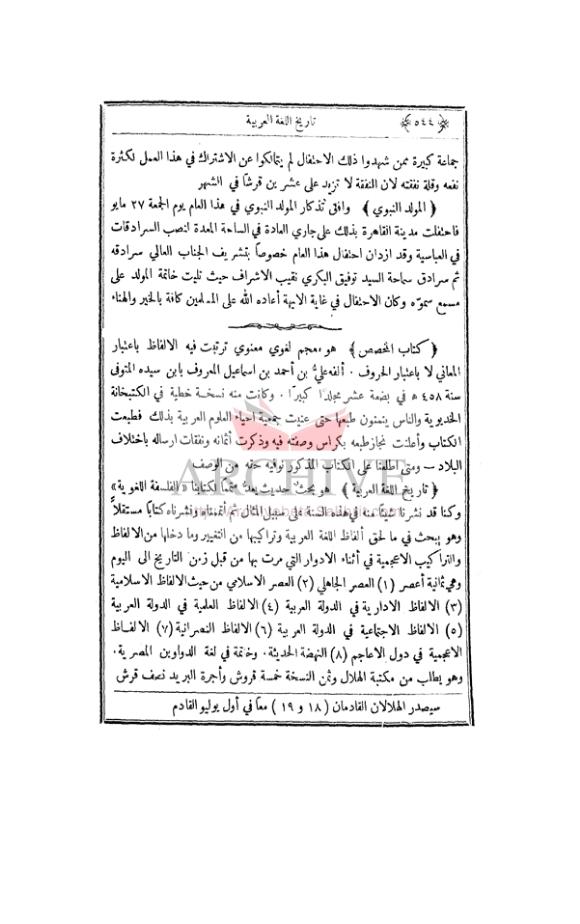 ﴿٥٤٤﴾ تاريخ اللغة العربية
جماعة كبيرة ممن شهدوا ذلك الاحتفال لم يتمالكوا عن الاشتراك في هذا العمل لكثرة
نفعه وقلة نفقته لان النفقة لا تزيد على عشرين قرشًا في الشهر
﴿ المولد النبوي ﴾ وافق تذكار المولد النبوي في هذا العام يوم الجمعة ٢٧ مايو
فاحتفلت مدينة القاهرة بذلك على جاري العادة في الساحة المعدة لنصب السرادقات
في العباسية وقد ازدان احتفال هذا العام خصوصاً بتشريف الجناب العالي سرادقه
ثم سرادق سماحة السيد توفيق البكري نقيب الاشراف حيث تليت خاتمة المولد على
مسمع سموّه وكان الاحتفال في غاية الابهة أعاده الله على المسلمين كافة بالخير والهناء
﴿ كتاب المخصص ﴾ هو معجم لغوي معنوي ترتبت فيه الالفاظ باعتبار
المعاني لا باعتبار الحروف . ألفه عليُّ بن أحمد بن اسماعيل المعروف بابن سيده المتوفى
سنة ٤٥٨ ھ في بضعة عشر مجلدًا كبيرًا . وكانت منه نسخة خطية في الكتبخانة
الخديوية والناس يتمنون طبعها حتى عنيت جمعية احياء العلوم العربية بذلك فطبعت
الكتاب وأعلنت نجاز طبعه بكراس وصفته فيه وذكرت أثمانه ونفقات ارساله باختلاف
البلاد — ومتى اطلعنا على الكتاب المذكور نوفيه حقه من الوصف
ARCHIVE
﴿ تاريخ اللغة العربية ﴾ هو بحث حديث يعدّ متمماً لكتابنا « الفلسفة اللغوية »
وكنا قد نشرنا شيئاً منه في هذه السنة على سبيل المثال ثم أتممناه ونشرناه كتابًا مستقلاً
وهو يبحث في ما لحق ألفاظ اللغة العربية وتراكيبها من التغيير وما دخلها من الالفاظ
والتراكيب الاعجمية في أثناء الادوار التي مرت بها من قبل زمن التاريخ الى اليوم
وهي ثمانية أعصر (١) العصر الجاهلي (٢) العصر الاسلامي من حيث الالفاظ الاسلامية
(٣) الالفاظ الادارية في الدولة العربية (٤) الالفاظ العلمية في الدولة العربية
(٥) الالفاظ الاجتماعية في الدولة العربية (٦) الالفاظ النصرانية (٧) الالفاظ
الاعجمية في دول الاعاجم (٨) النهضة الحديثة . وخاتمة في لغة الدواوين المصرية .
وهو يطلب من مكتبة الهلال وثمن النسخة خمسة قروش وأجرة البريد نصف قرش
سيصدر الهلالان القادمان ( ١٨ و ١٩ ) معاً في أول يوليو القادم